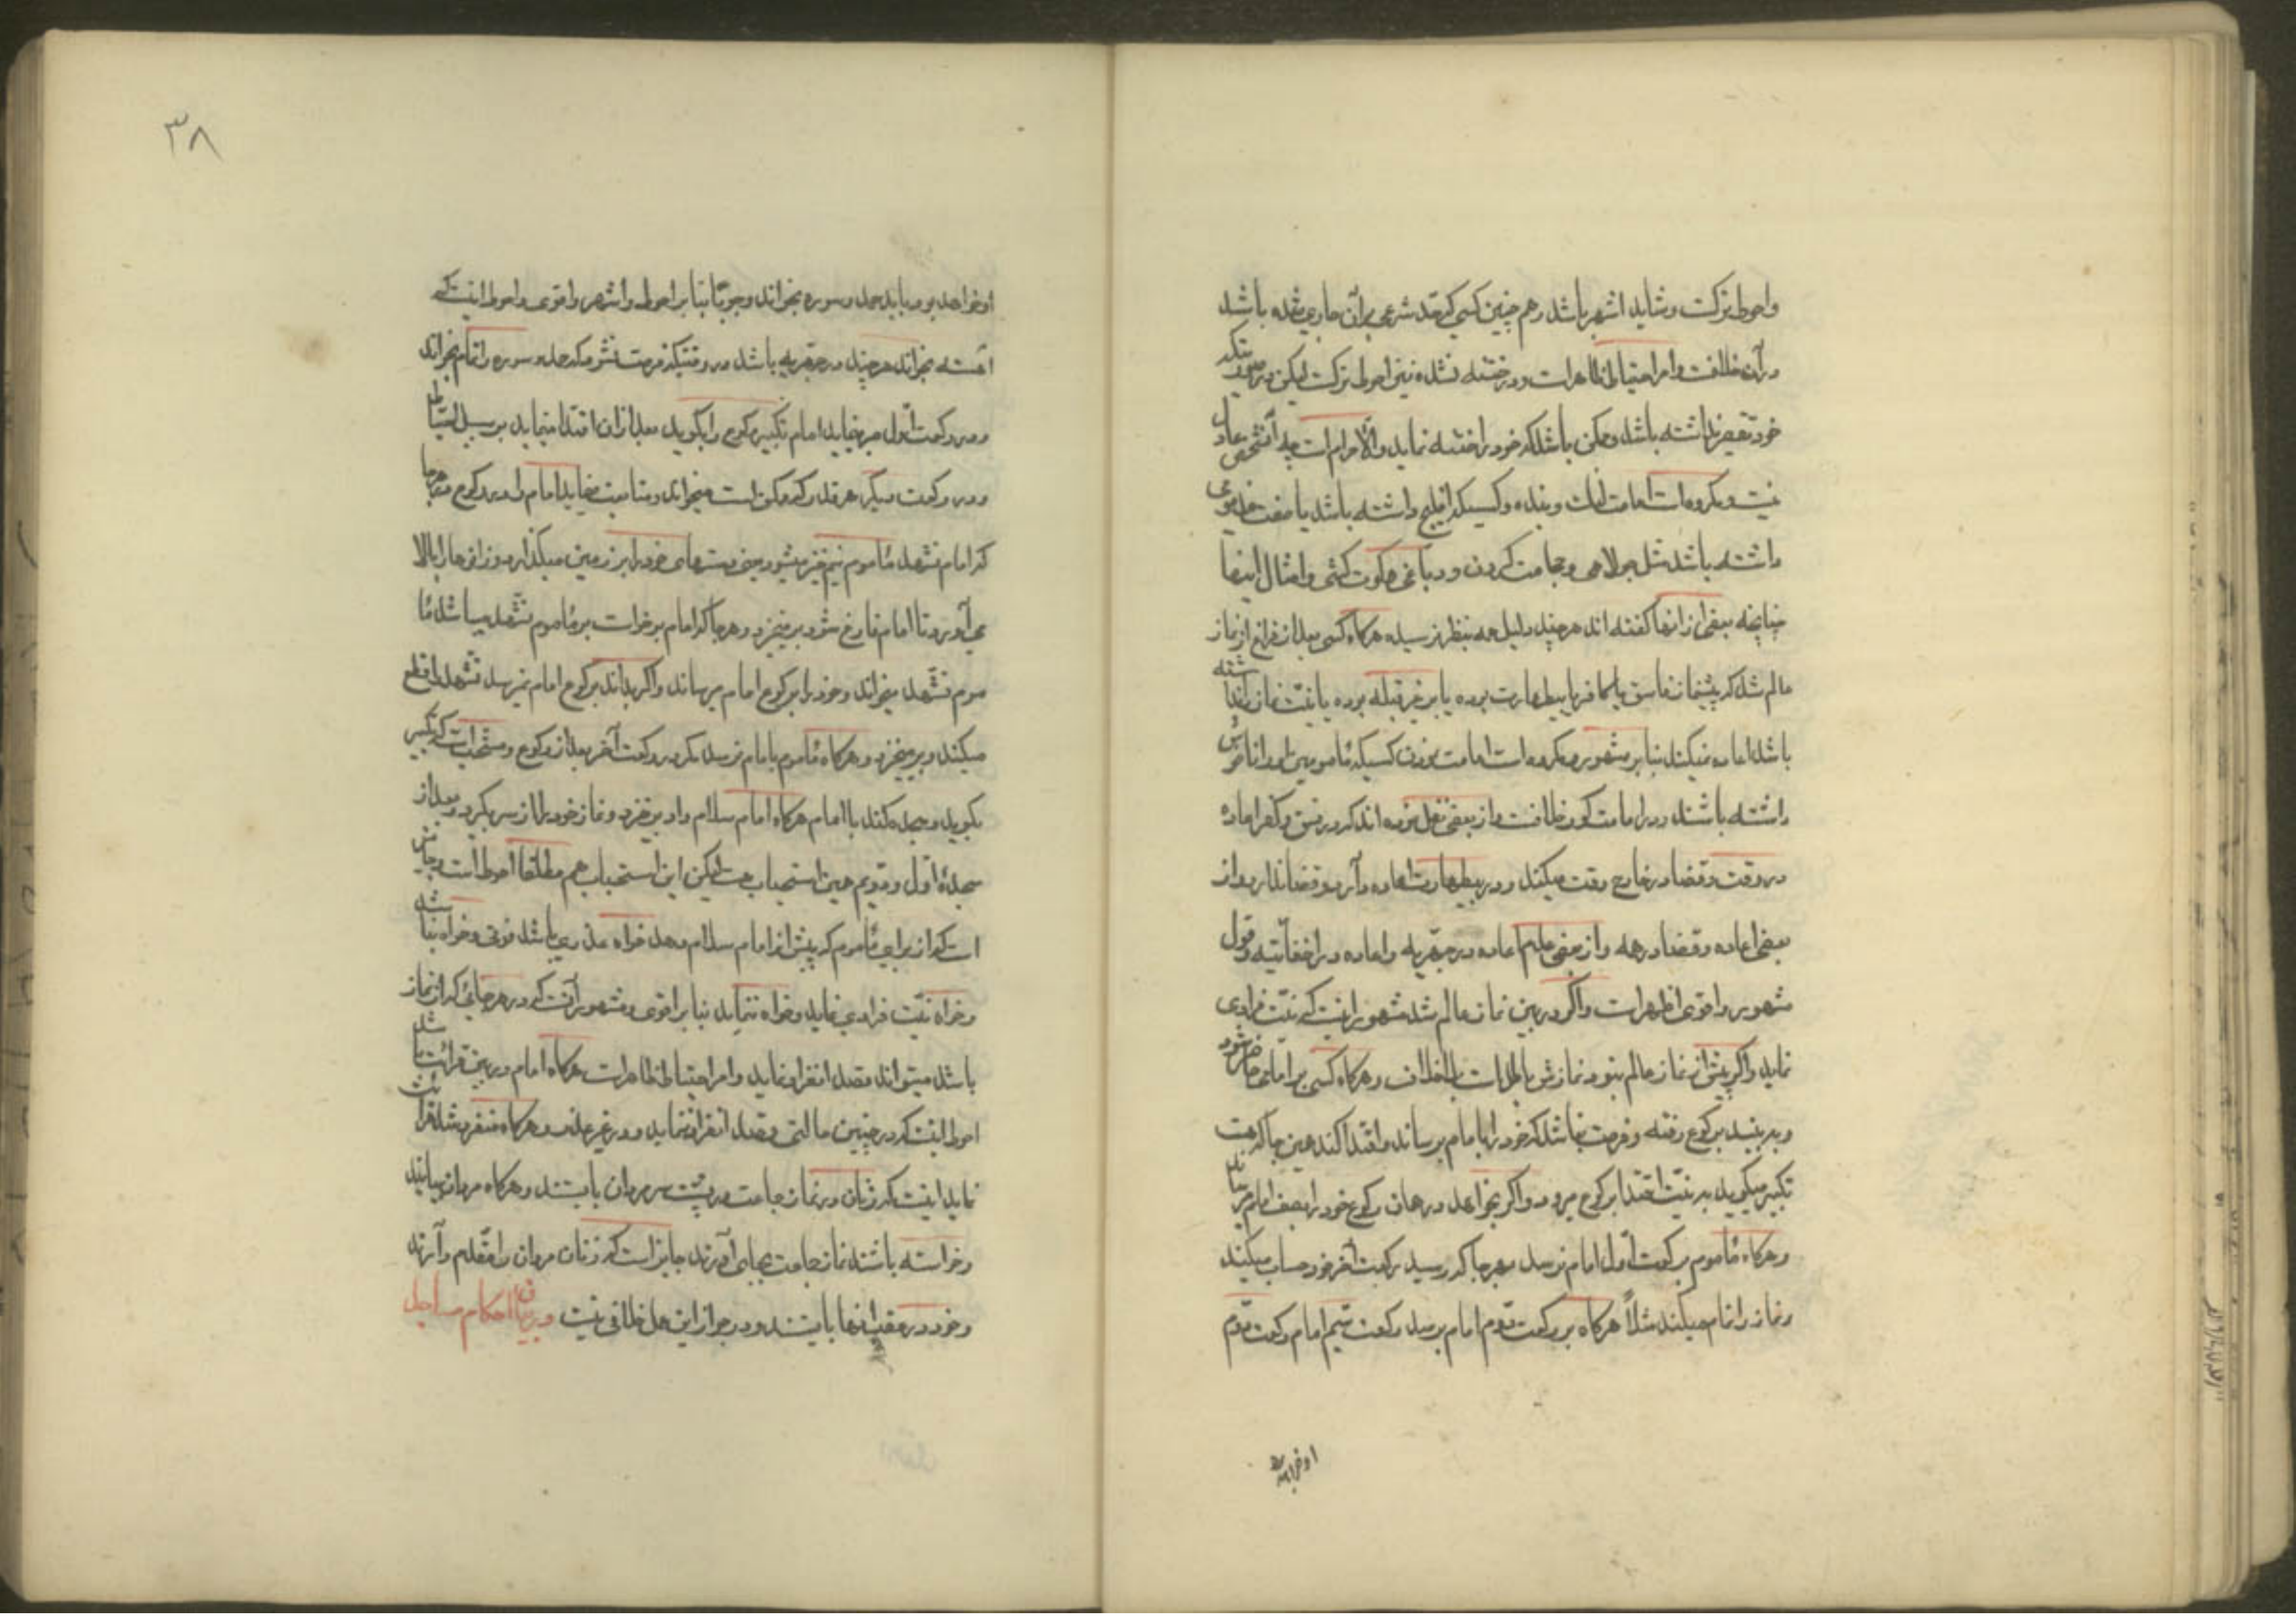 واحوط ترکست وشاید اشهر باشد وهم چنین کسی که حد شرعی بر آن جاری شده باشد
در آن خلافست وامر احتیاط ظاهر است ودر ختنه نشده نیز احوط ترکست لیکن در صورتیکه
خود تقصیر نداشته باشد وممکن باشد که خود را ختنه نماید والا حرام است چه آنشخص عادل
نیست ومکروه است امامت بنده وکسیکه افلیج داشته باشد یا صفت
داشته باشد مثل جولاهی وحجامت کردن ودباغی وامثال اینها
چنانچه بعضی از آنها گفته اند هر چند دلیل همه بنظر نرسیده هرگاه کسی بعد از فراغ از نماز
عالم شد که پیشنماز فاسق یا کافر یا بیطهارت بوده یا بر غیر قبله بوده یا نیت نماز نداشته
باشد اعاده نمیکند بنا بر مشهور ومکروه است امامت نمودن کسیکه مأمومین او را ناخوش
داشته باشند ودر امامت کور خلافست واز بعضی نقل نموده اند که در فسق وکفر اعاده
در وقت وقضا در خارج وقت میکند ودر بیطهارت اعاده دارد وقضا ندارد واز
بعضی اعاده وقضا در همه واز بعضی عدم اعاده در جهریه واعاده در اخفاتیه وقول
مشهور واقوی اظهر است واگر در بین نماز عالم شد مشهور اینست که نیت فرادی
نماید واگر پیش از نماز عالم بود نمازش باطل است بلا خلاف وهرگاه کسی بر امامی حاضر شود
وببیند برکوع رفته وفرصت نباشد که خود را بامام برساند واقتدا کند همین جا که هست
تکبیر میگوید به نیت اقتدا برکوع میرود واگر بخواهد در همان رکوع خود را بصف امام میرساند
وهرگاه مأموم برکعت اول امام نرسد بهر جا که رسید رکعت آخر خود حساب میکند
ونماز را تمام میکند مثلاً هرگاه بر رکعت دوم امام برسد رکعت سیم امام رکعت دوم
او خواهد
۳۸
او خواهد بود باید حمد وسوره بخواند وجوبًا بنا بر احوط واشهر واقوی واحوط اینست که
آهسته بخواند هر چند در جهریه باشد ودر وقتیکه فرصت نشود که حمد وسوره را تمام بخواند
ودر رکعت اول میرماید امام تکبیر رکوع را بگوید بعد از آن اقتدا مینماید بر سبیل احتیاط
ودر رکعت دیگر هر قدر که ممکن است میخواند ومتابعت مینماید امام را در رکوع وهر جا
که امام تشهد مأموم نیم خیز میشود یعنی دستهای خود را بر زمین میگذارد وزانوها را بالا
می آورد تا امام فارغ شود بر میخیزد وهر جا که امام بر خواست بر مأموم تشهد میباشد مأ
موم تشهد میخواند وخود را برکوع امام میرساند واگر بداند برکوع امام نمیرسد تشهد را قطع
میکند وبر میخیزد وهرگاه مأموم بامام نرسد مگر در رکعت آخر بعد از رکوع مستحب است که تکبیر
بگوید وسجده کند با امام هرگاه امام سلام داد بر خیزد ونماز خود را از سر بگیرد وبعد از
سجدهٔ اول ودویم همین استحباب هست لیکن این استحباب هم مطلقاً احوط است وجایز
است که از برای مأموم که پیش از امام سلام دهد خواه عذری باشد فوتی وخواه نباشد
وخواه نیت فرادی نماید وخواه ننماید بنا بر اقوی ومشهور آنست که در هر جائی که از نماز
باشد میتواند قصد انفراد نماید وامر احتیاط ظاهر است هرگاه امام در بین قرائت باشد
احوط اینست که در چنین حالتی قصد انفراد ننماید ودر غیر عذر وهرگاه منفرد شد قرائت
نماید اینست که زنان در نماز جماعت در پشت سر مردان بایستند وهرگاه مردان بیایند
وخواسته باشند نماز جماعت بجای آورند جایز است که زنان مردان را مقدم دارند
وخود در عقب آنها بایستند ودر جواز این محل خلافی نیست در بیان احکام مساجد